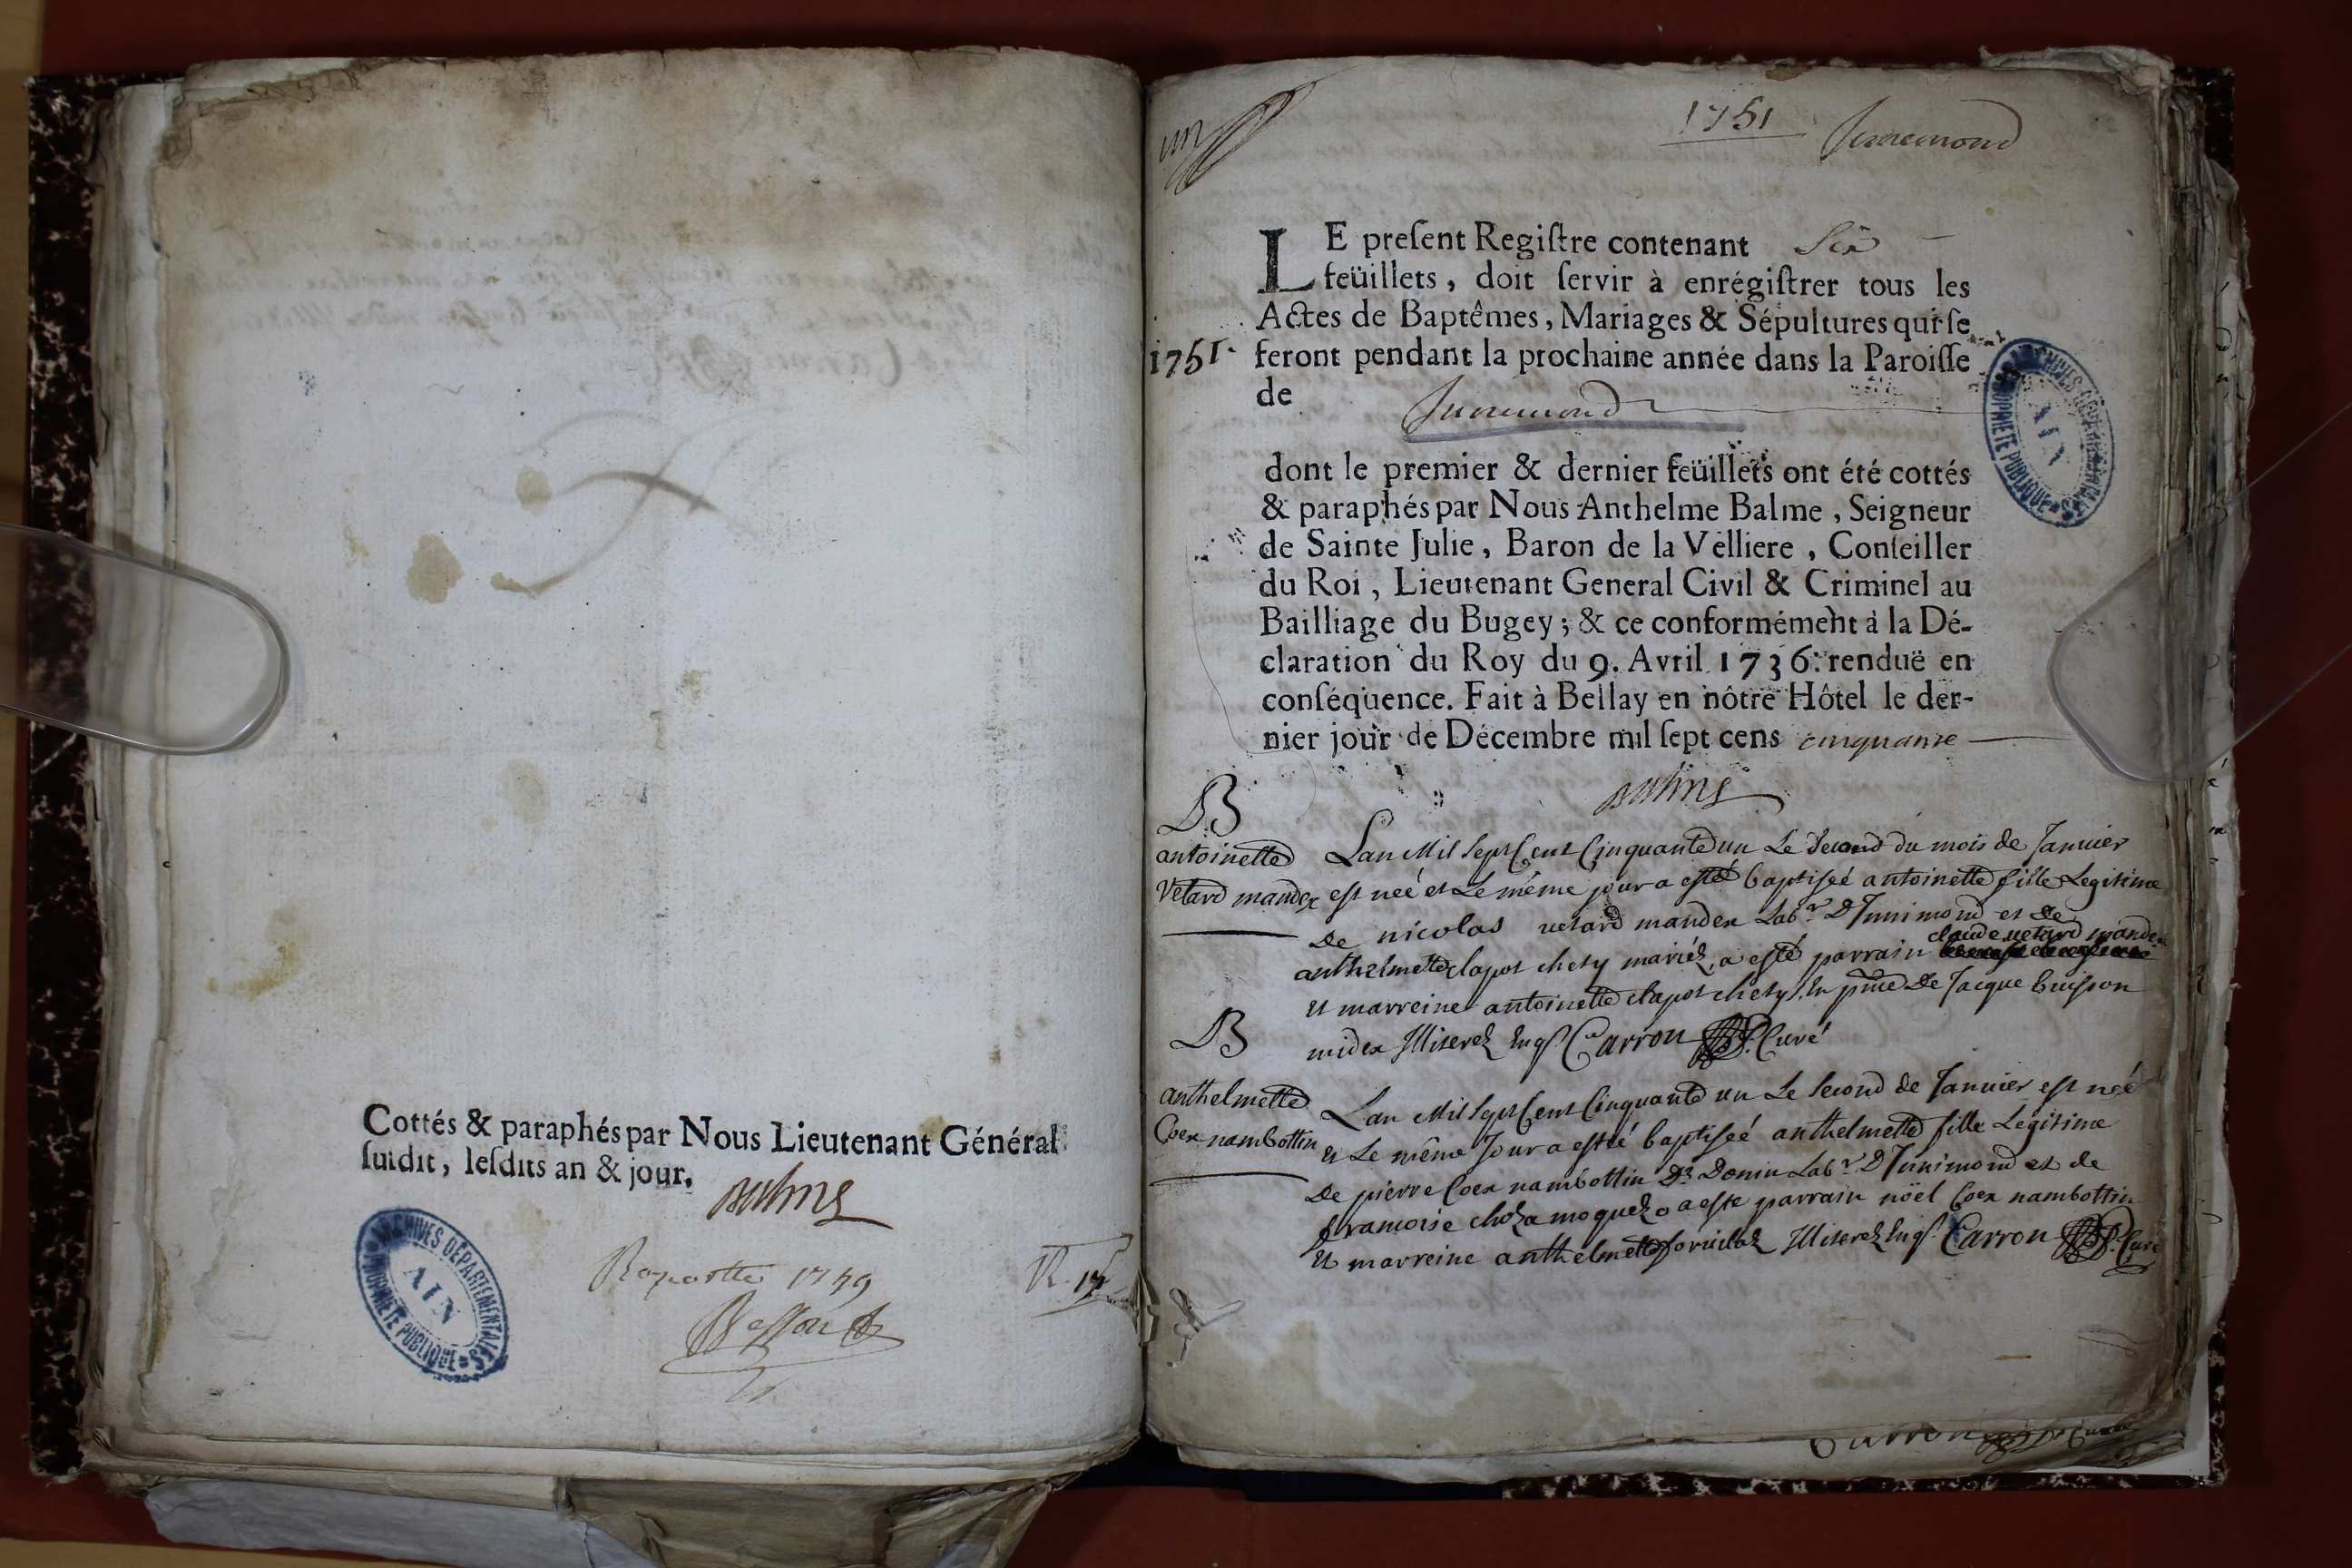 Cottés & paraphés par Nous Lieutenant Général
ſuſdit, leſdits an & jour.
Balme
Raporttée 1749
ARCHIVES DÉPARTEMENTALES
AIN
PROPRIÉTÉ PUBLIQUE
1751
Junremond
LE preſent Regiſtre contenant Six
feüillets, doit ſervir à enrégiſtrer tous les
Actes de Baptêmes, Mariages & Sépultures qui ſe
1751.
feront pendant la prochaine année dans la Paroiſſe
de
dont le premier & dernier feüillets ont été cottés
& paraphés par Nous Anthelme Balme, Seigneur
de Sainte Julie, Baron de la Velliere, Conſeiller
du Roi, Lieutenant General Civil & Criminel au
Bailliage du Bugey; & ce conformément à la Dé-
claration du Roy du 9. Avril 1736. renduë en
conſéquence. Fait à Bellay en nôtre Hôtel le der-
nier jour de Décembre mil ſept cens cinquante
Balme
ARCHIVES DÉPARTEMENTALES
AIN
PROPRIÉTÉ PUBLIQUE
B
antoinette
Vetard mandex
Lan Mil Sept Cent Cinquante un Le Second du mois de Janvier
est neé et Le même jour a esté baptiseé antoinette fille Legitime
De nicolas vetard mandex Labr D Innimond et de
anthelmette clapot chety mariéz, a esté parrain claude vetard mandex
et marreine antoinette clapot chety. En pnce De Jacque buisson
midex Illiterez Enqs Carron Curé
B
anthelmette
Coex nambottin
Lan Mil Sept Cent Cinquante un Le Second de Janvier est neé
et Le même Jour a esté baptiseé anthelmette fille Legitime
De pierre Coex nambottin Dt Donin Labr D Innimond et de
francoise a esté parrain noël Coex nambottin
et marreine anthelmette Illiterez Enqs Carron Curé